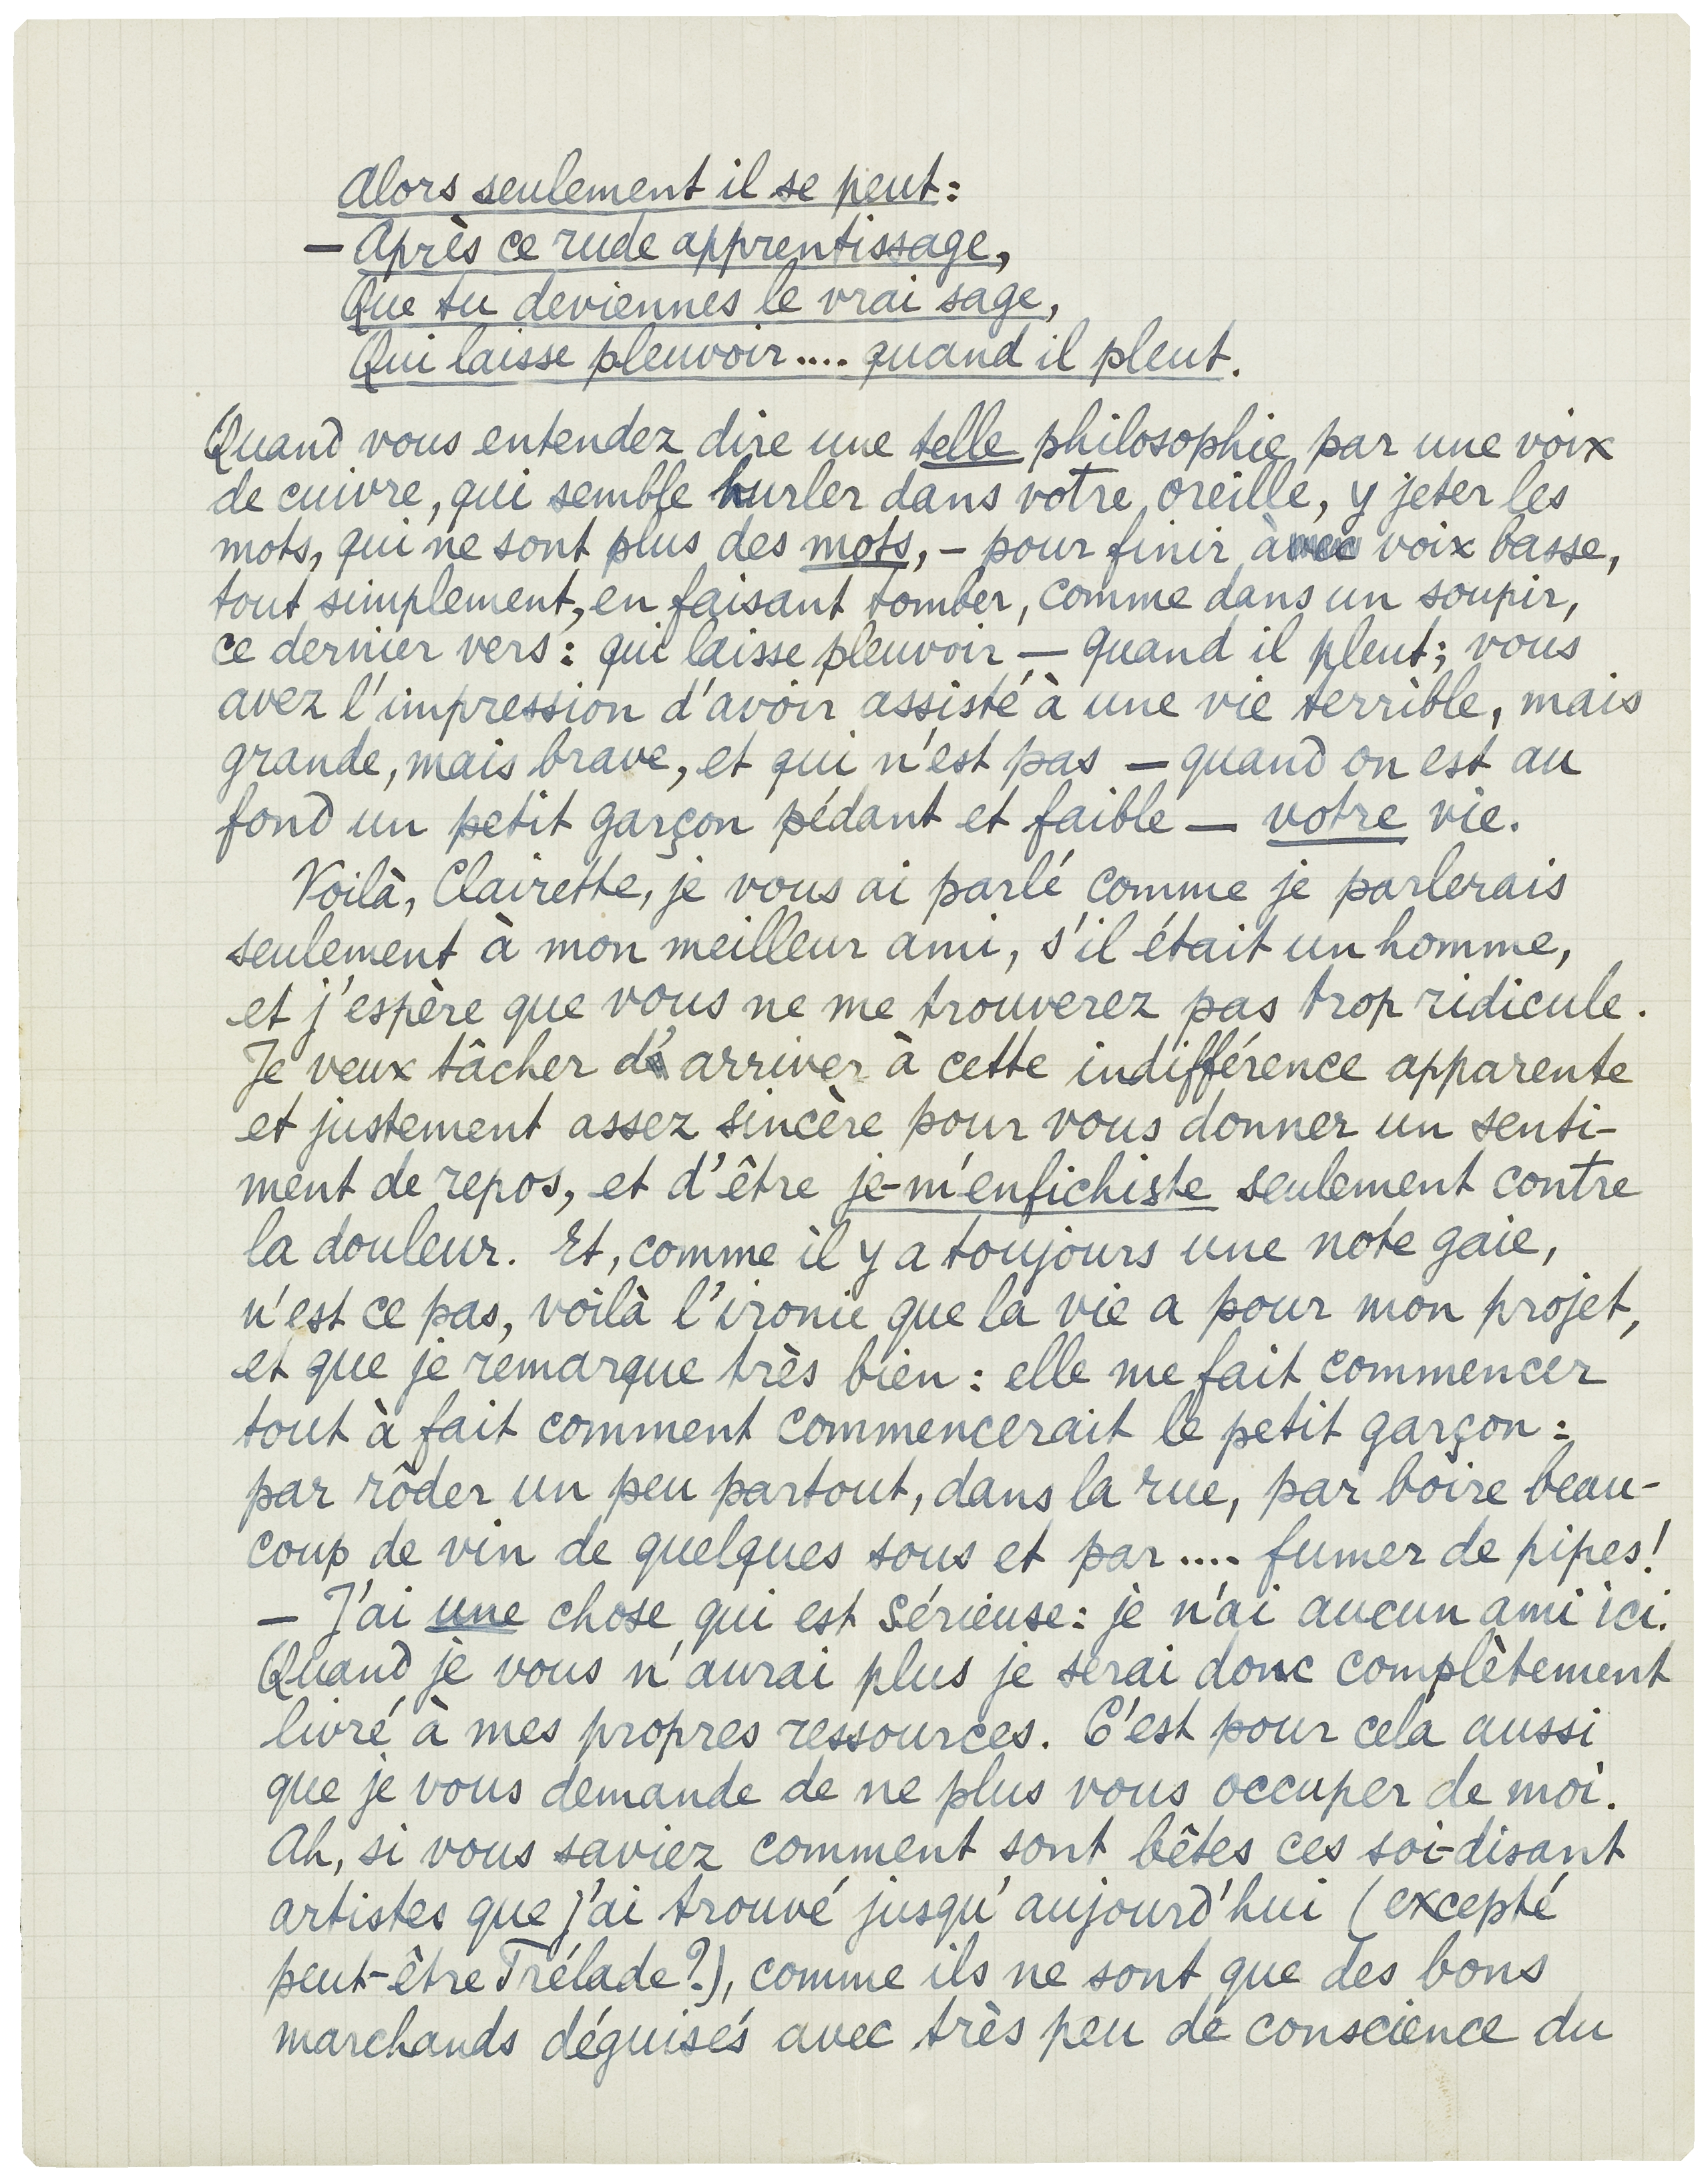 Alors seulement il se peut:
— Après ce rude apprentissage,
Que tu deviennes le vrai sage,
Qui laisse pleuvoir.... quand il pleut.
Quand vous entendez dire une telle philosophie par une voix
de cuivre, qui semble hurler dans votre oreille, y jeter les
mots, qui ne sont plus des mots, – pour finir à voix basse,
tout simplement, en faisant tomber, comme dans un soupir,
ce dernier vers: qui laisse pleuvoir — quand il pleut; vous
avez l'impression d'avoir assisté à une vie terrible, mais
grande, mais brave, et qui n'est pas — quand on est au
fond un petit garçon pédant et faible — votre vie.
Voilà, Clairette, je vous ai parlé comme je parlerais
seulement à mon meilleur ami, s'il était un homme,
et j'espère que vous ne me trouverez pas trop ridicule.
Je veux tâcher d'arriver à cette indifférence apparente
et justement assez sincère pour vous donner un senti-
ment de repos, et d'être je-m'enfichiste seulement contre
la douleur. Et, comme il y a toujours une note gaie,
n'est ce pas, voilà l'ironie que la vie a pour mon projet,
et que je remarque très bien: elle me fait commencer
tout à fait comment commencerait le petit garçon:
par rôder un peu partout, dans la rue, par boire beau-
coup de vin de quelques sous et par.... fumer de pipes!
— J'ai une chose qui est sérieuse: je n'ai aucun ami ici.
Quand je vous n'aurai plus je serai donc complètement
livré à mes propres ressources. C'est pour cela aussi
que je vous demande de ne plus vous occuper de moi.
Ah, si vous saviez comment sont bêtes ces soi-disant
artistes que j'ai trouvé jusqu'aujourd'hui (excepté
peut-être Trélade?), comme ils ne sont que des bons
marchands déguisés avec très peu de conscience du